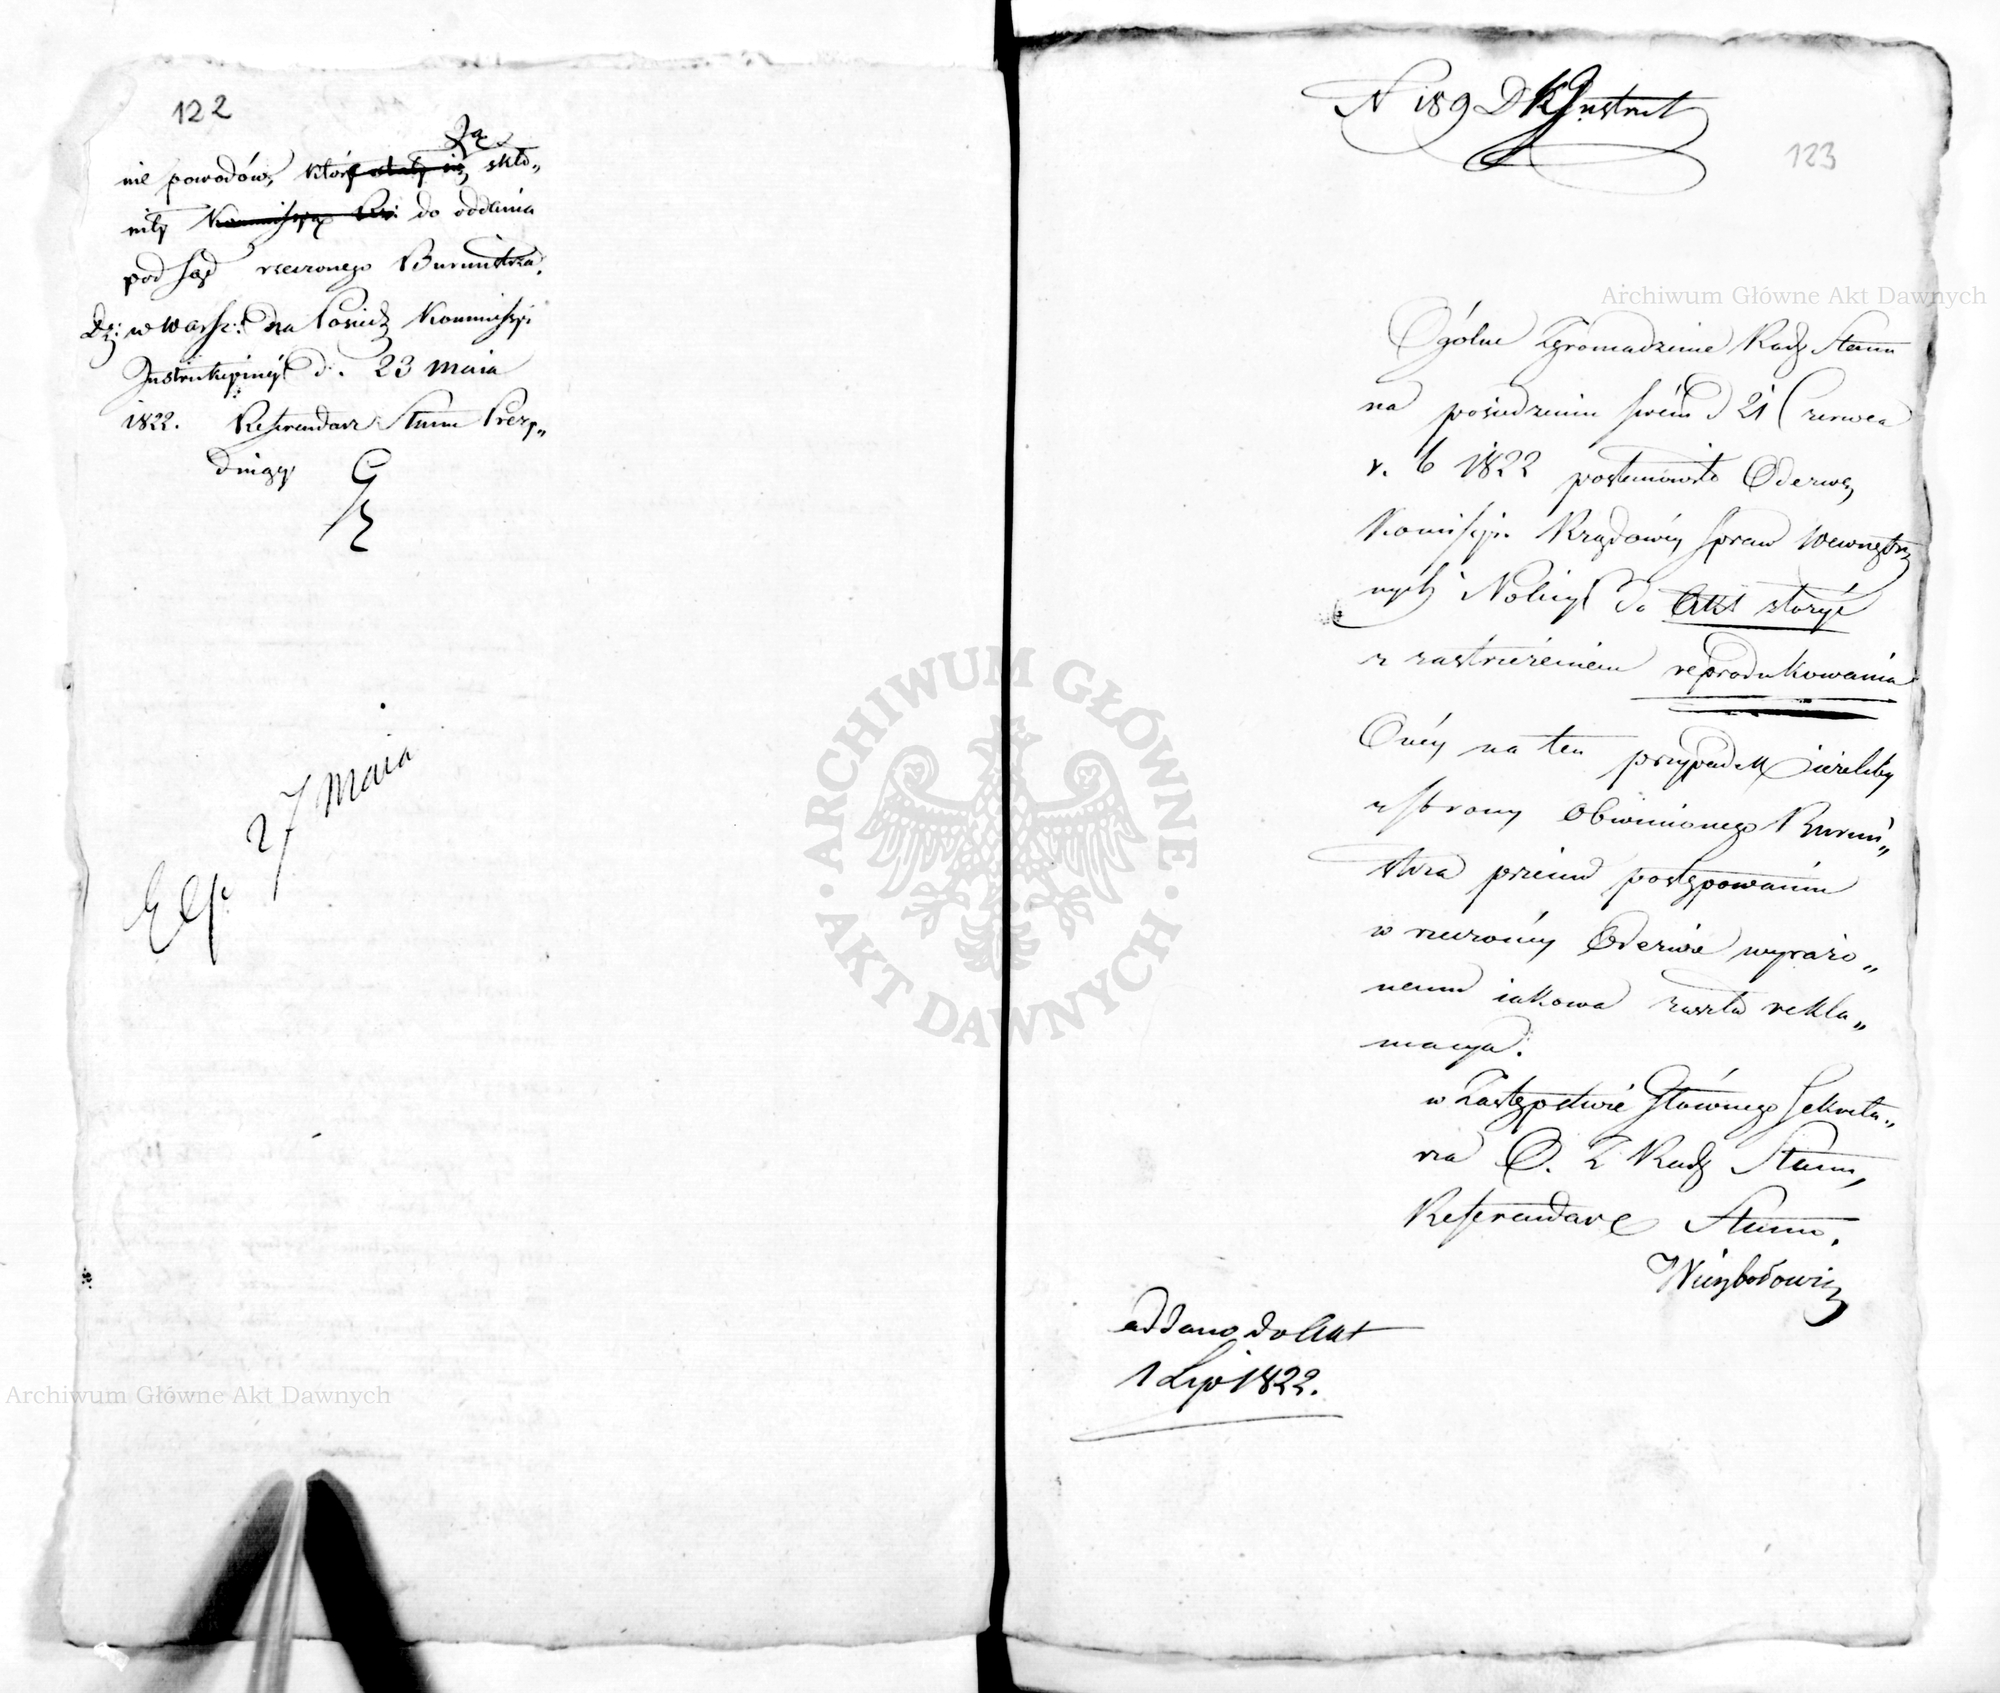 122
Ją
nie powodów, które stały się, skło„
niły Kommissyą Rzą: do oddania
pod Sąd rzeczonego Burmistrza.
Dz: w Warsz: na Posiedz Kommissyi
Instrukcyinéj d. 23 maia
1822. Referendarz Stanu Prezy„
duiący
Exp. 27 Maia
N 189 D K Instruk
123
Ogólne Zgromadzenie Rady Stanu
na posiedzeniu swém d 21 Czerwca
r. b 1822 postanowiło Odezwę
Komissyi Rządowéj Spraw Wewnętrz
nych i Policyi do Akt złożyć
z zastrzeżeniem reprodukowania
Onéy na ten przypadek ieżeliby
z strony obwinionego Burmi„
strza przeciw postępowaniu
w rzeczonéy Odezwie wyrażo„
nemu iakowa zaszła rekla„
macya.
w Zastępstwie Głównego Sekreta„
rza O. Z Rady Stanu,
Referendarz Stanu.
oddano do Akt
1 Lip 1822.
ARCHIWUM GŁÓWNE AKT DAWNYCH
Archiwum Główne Akt Dawnych
Archiwum Główne Akt Dawnych